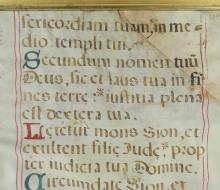 sericordiam tuam, in me-
dio templi tui.
Secundum nomen tuũ
Deus, sic et laus tua in fi
nes terrę: iustitia plena
est dextera tua.
Lętetur mons Sion, et
exultent filię Judę: prop
ter iudicia tua Domine.
Circumdate Sion, et